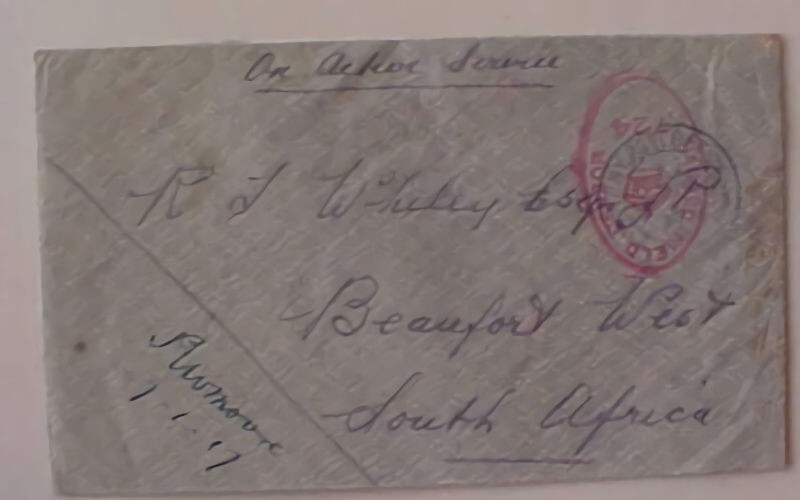 On Active Service
R J Whiley Esqr J P
Beaufort West
South Africa
1-1-17
FIELD